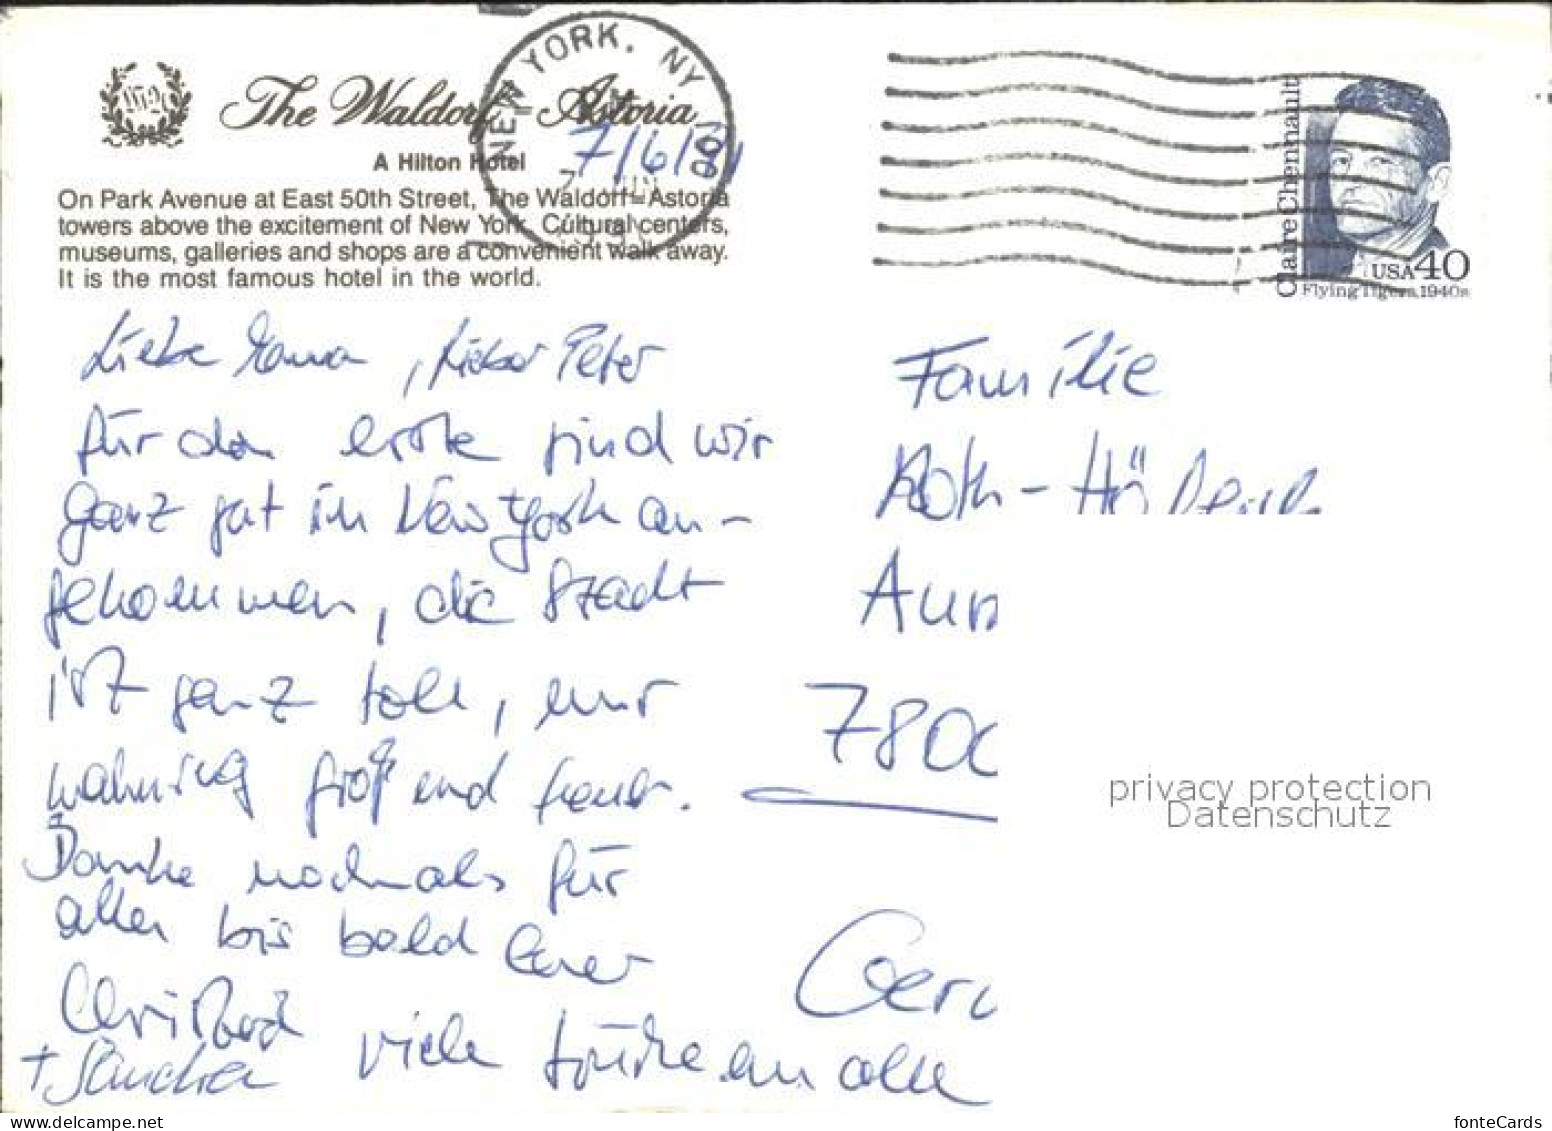 The Waldorf Astoria
A Hilton Hotel
On Park Avenue at East 50th Street, The Waldorf=Astoria
towers above the excitement of New York. Cultural centers,
museums, galleries and shops are a convenient walk away.
It is the most famous hotel in the world.
NEW YORK, NY 100
7/6/91
Claire Chennault
USA 40
Flying Tigers, 1940s
Liebe , Lieber Peter
für das erste sind wir
ganz gut in New York an-
gekommen, die Stadt
ist ganz toll, nur
wahnsinnig groß und teuer.
Danke nochmals für
alles bis bald Euer
Christoph
+ Sandra viele Grüße an alle
Familie
Roth-
780
Ger
privacy protection
Datenschutz
fonteCards